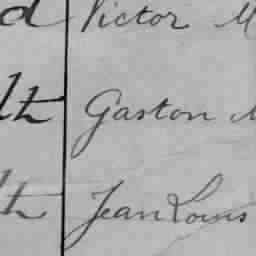 d Victor M
lt Gaston M
lt Jean Louis